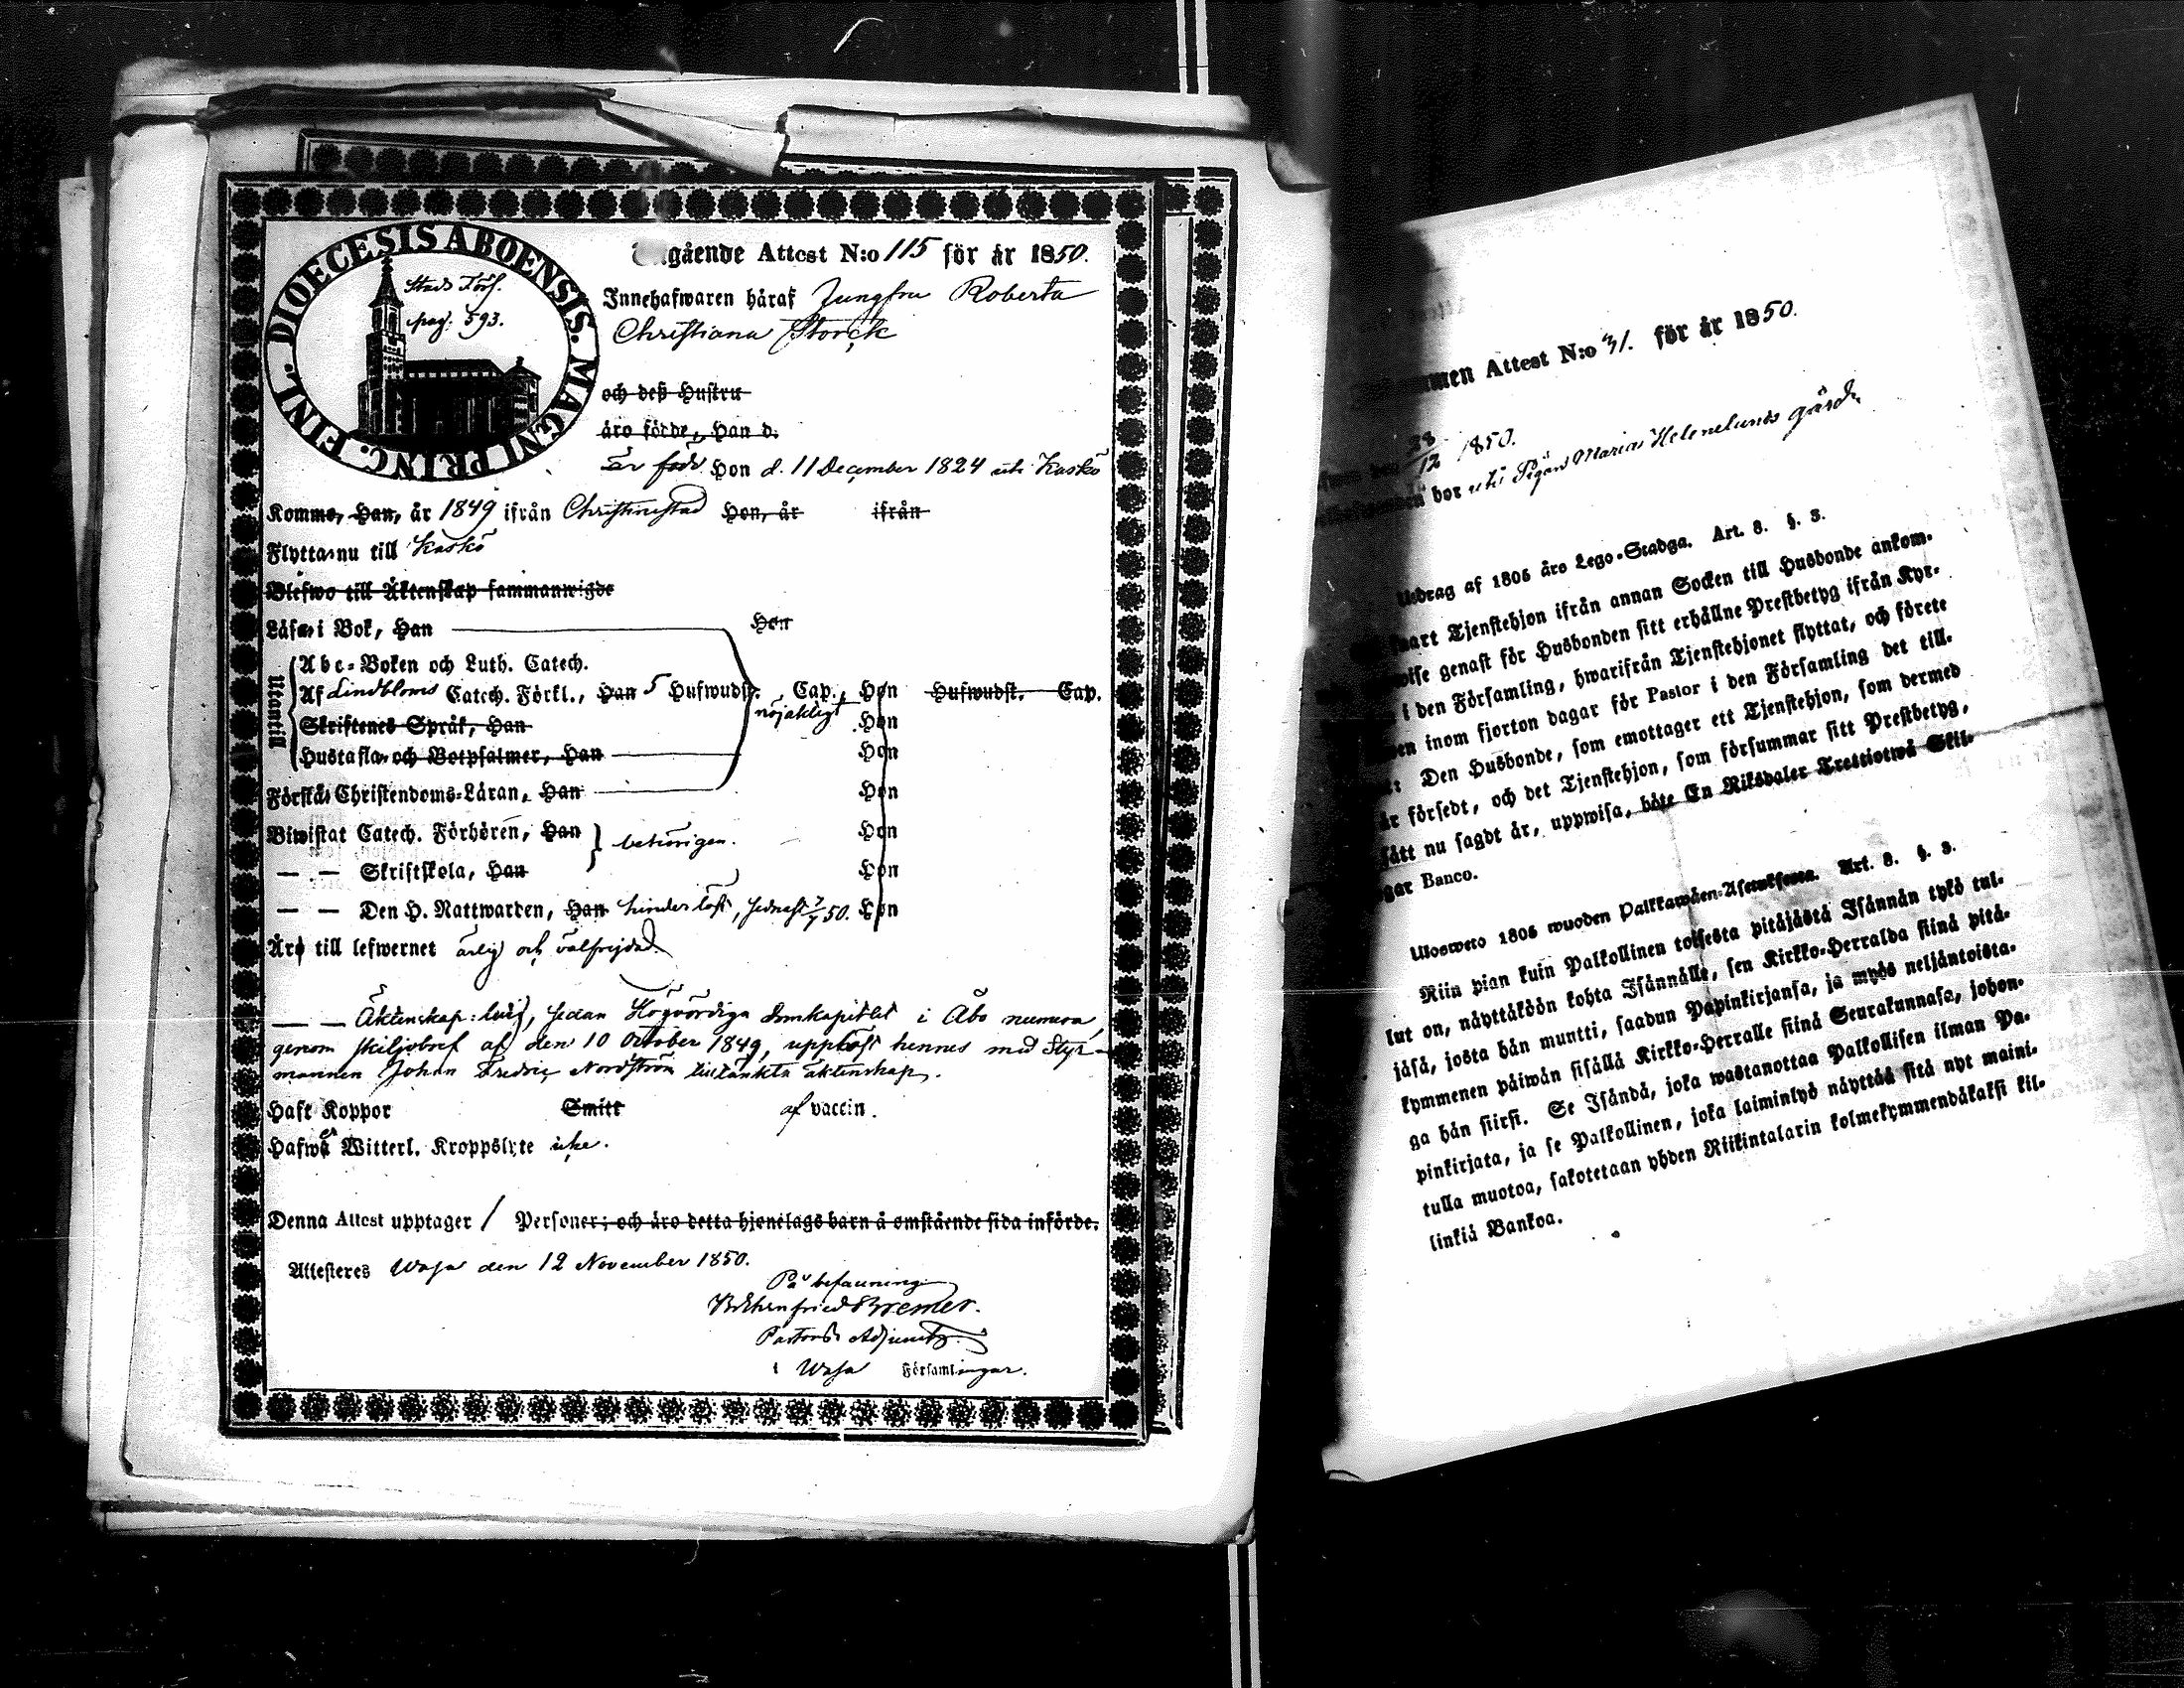 DIOECESIS ABOENSIS. MAGNI PRINC. FINL.
Stads Förs.
pag: 593.
gående Attest N:o 115 för år 1850.
Innehafwaren häraf Jungfru Roberta
Christiana Storck
och deß Hustru
äro födde, Han d.
är född Hon d. 11 December 1824 uti Kaskö
Komme, Han, år 1849 ifrån Christinestad Hon, år ifrån
Flytta nu till Kaskö
Blefwo till Äktenskap sammanwigde
Läsa i Bok, Han Hon
Utantill
Abc-Boken och Luth. Catech.
Af Lindbloms Catech. Förkl., Han 5 Hufwudst. Cap., Hon Hufwudst. Cap.
nöjaktigt
Skriftenes Språk, Han Hon
Hustafla och Botpsalmer, Han Hon
Förstå Christendoms-Läran, Han Hon
Biwistat Catech. Förhören, Han behörigen. Hon
— — Skriftskola, Han Hon
— — Den H. Nattwarden, Han hinderlöst, sednast 7/7 50. Hon
Äro till lefwernet ärlig och välfrejdad.
— — Äktenskap: ledig, sedan Högvördiga Domkapitlet i Åbo numera,
genom skiljobref af den 10 October 1849, upplöst hennes med Styr-
mannen Johan Fredric Nordström tilltänkta äktenskap.
Haft Koppor Smitt af vaccin.
Hafwa Witterl. Kroppslyte icke.
Denna Attest upptager 1 Personer; och äro detta hjonelags barn å omstående sida införde.
Attesteres Wasa den 12 November 1850.
På befallning
Bremer.
Pastors Adjunct.
i Wasa Församlingar.
men Attest N:o 41. för år 1850.
28/12 1850.
bor uti Pigan Marias Helenelunds gård
Utdrag af 1805 års Lego-Stadga. Art. 8. §. 3.
wart Tjenstehjon ifrån annan Socken till Husbonde ankom-
wise genast för Husbonden sitt erhållne Prestbetyg ifrån Kyr-
i den Församling, hwarifrån Tjenstehjonet flyttat, och förete
inom fjorton dagar för Pastor i den Församling det till-
Den Husbonde, som emottager ett Tjenstehjon, som dermed
är försedt, och det Tjenstehjon, som försummar sitt Prestbetyg,
sätt nu sagdt är, uppwisa, böte En Riksdaler Trettiotwå Skil-
gar Banco.
Ulosweto 1805 wuoden Palkkawäen-Asetuksesta. Art. 8. §. 3.
Niin pian kuin Palkollinen toisesta pitäjästä Isännän tykö tul-
lut on, näyttäköön kohta Isännälle, sen Kirkko-Herralda siinä pitä-
jäsä, josta hän muutti, saadun Papinkirjansa, ja myös neljäntoista-
kymmenen päiwän sisällä Kirkko-Herralle siinä Seurakunnasa, johon-
ga hän siirsi. Se Isändä, joka wastanottaa Palkollisen ilman Pa-
pinkirjata, ja se Palkollinen, joka laiminlyö näyttää sitä nyt maini-
tulla muotoa, sakotetaan yhden Riikintalarin kolmekymmendäkaksi kil-
linkiä Bankoa.